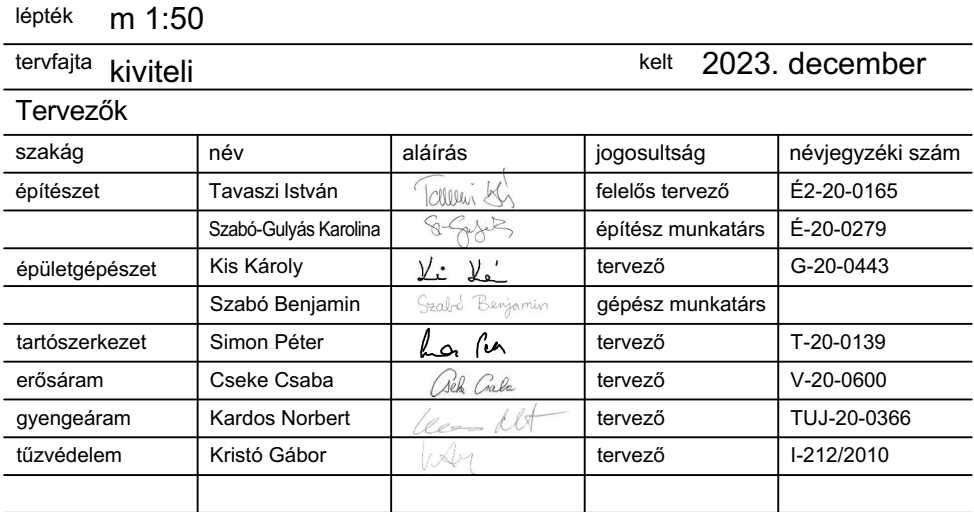 lépték m 1:50
tervfajta kiviteli kelt 2023. december
Tervezők
szakág név aláírás jogosultság névjegyzéki szám
építészet Tavaszi István felelős tervező É2-20-0165
Szabó-Gulyás Karolina építész munkatárs É-20-0279
épületgépészet Kis Károly tervező G-20-0443
Szabó Benjamin Szabó Benjamin gépész munkatárs
tartószerkezet Simon Péter tervező T-20-0139
erősáram Cseke Csaba tervező V-20-0600
gyengeáram Kardos Norbert tervező TUJ-20-0366
tűzvédelem Kristó Gábor tervező I-212/2010